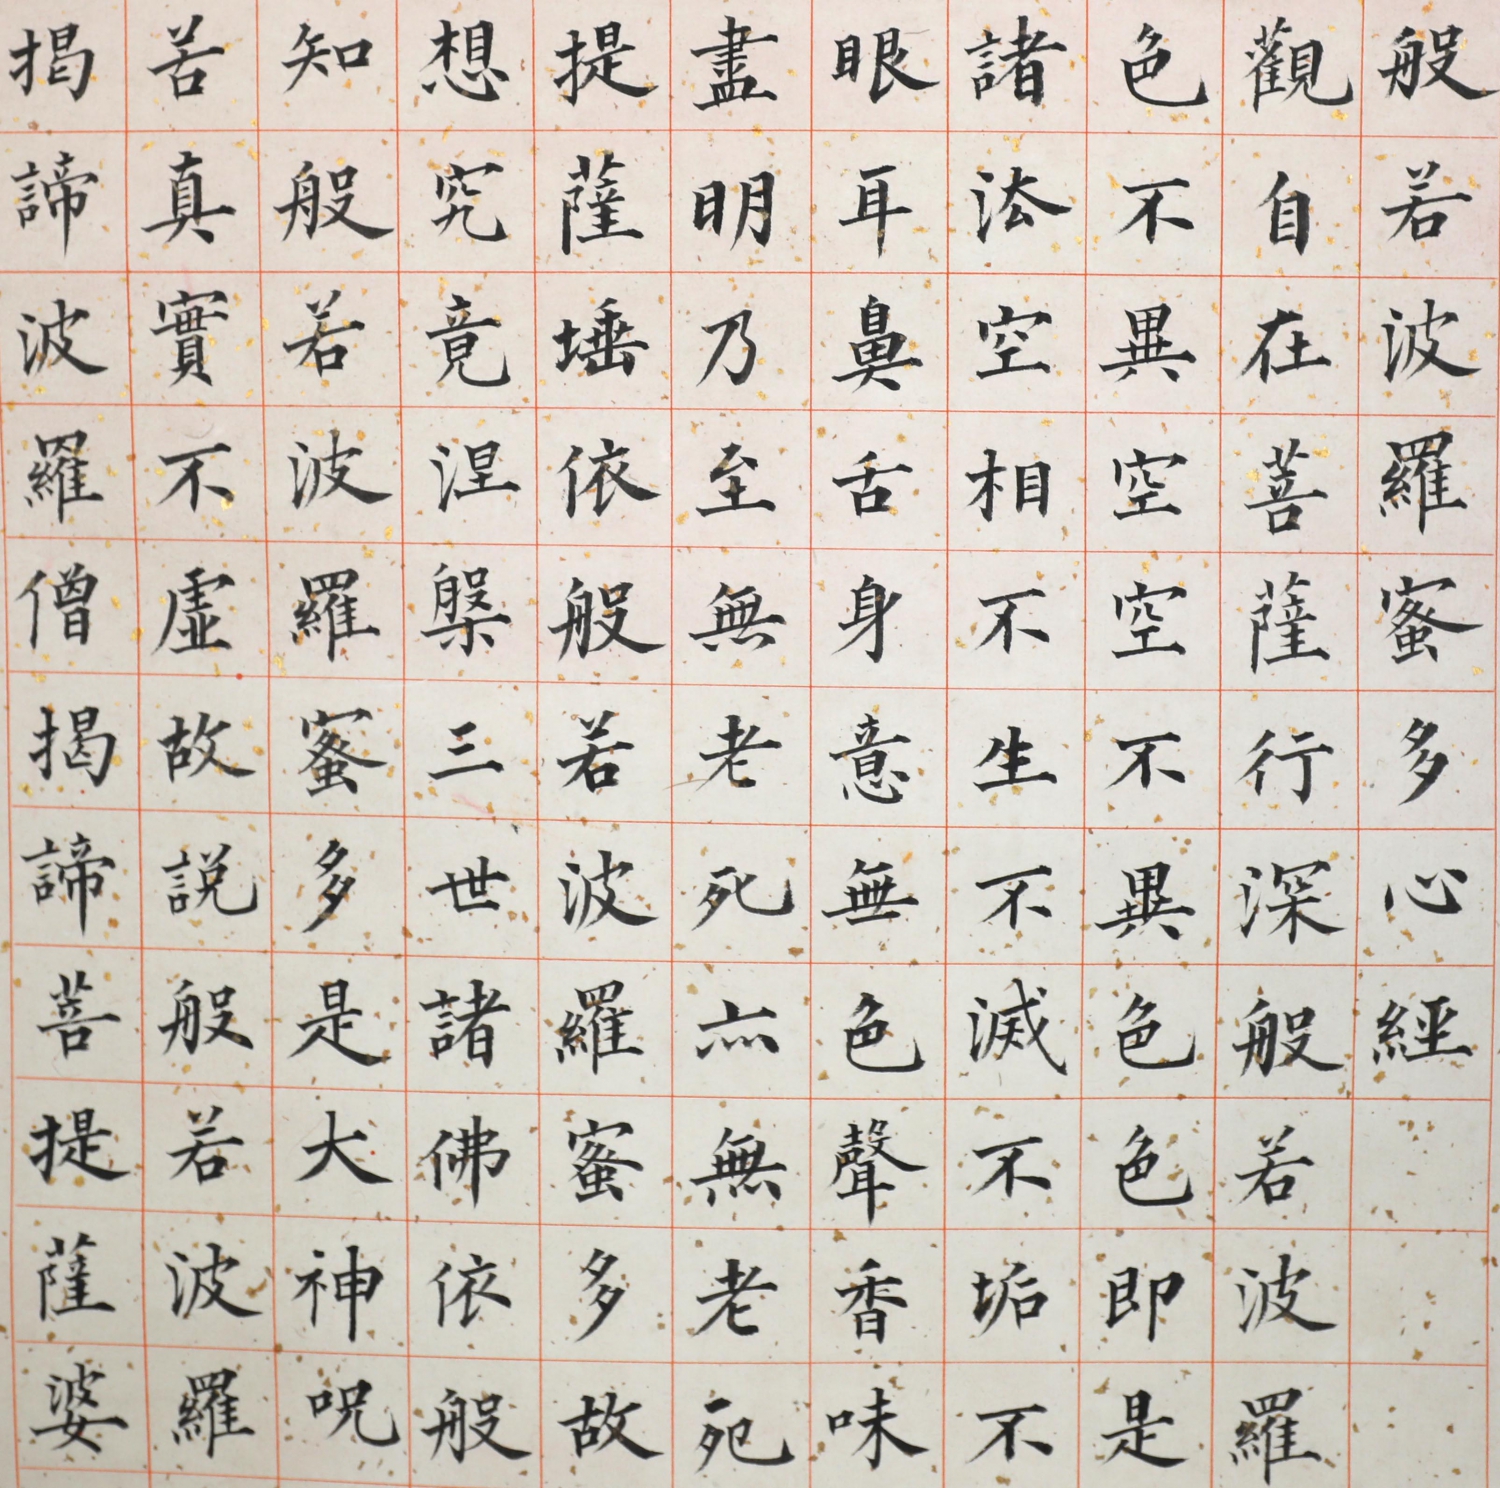 般若波羅蜜多心經
觀自在菩薩行深般若波羅
色不異空空不異色色即是
諸法空相不生不滅不垢不
眼耳鼻舌身意無色聲香味
盡明乃至無老死亦無老死
提薩埵依般若波羅蜜多故
想究竟涅槃三世諸佛依般
知般若波羅蜜多是大神呪
苦真實不虛故説般若波羅
揭諦波羅僧揭諦菩提薩婆